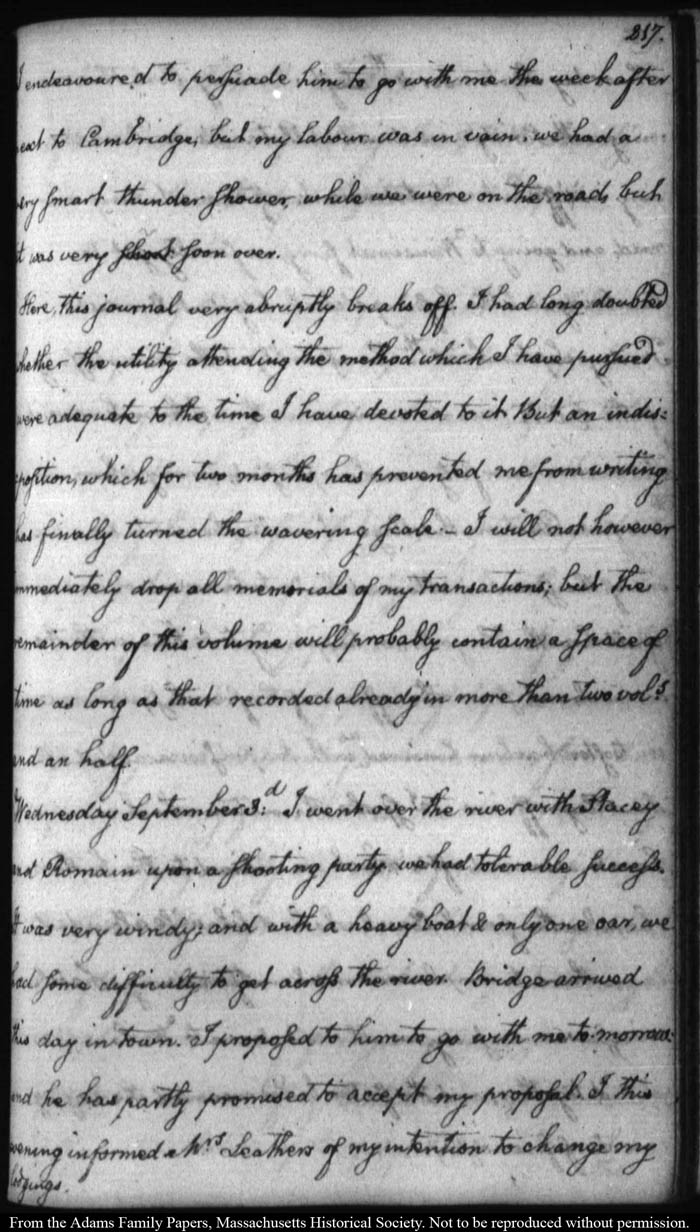 217.
I endeavoured to perſuade him to go with me the week after
next to Cambridge, but my labour was in vain. we had a
very ſmart thunder ſhower, while we were on the road, but
it was very ſhort ſoon over.
Here, this journal very abruptly breaks off. I had long doubted
whether the utility attending the method which I have purſued
were adequate to the time I have devoted to it. But an indis=
poſition, which for two months has prevented me from writing
has finally turned the wavering ſcale. — I will not however
immediately drop all memorials of my transactions; but the
remainder of this volume will probably contain a ſpace of
time as long as that recorded already in more than two vol.s
and an half.
Wednesday September 3:d I went over the river with Stacey
and Romain upon a ſhooting party we had tolerable ſucceſs.
It was very windy; and with a heavy boat & only one oar, we
had ſome difficulty to get acroſs the river. Bridge arrived
this day in town. I propoſed to him to go with me to-morrow:
and he has partly promised to accept my propoſal. I this
evening informed Mrs Leathers of my intention to change my
lodgings.
From the Adams Family Papers, Massachusetts Historical Society. Not to be reproduced without permission.